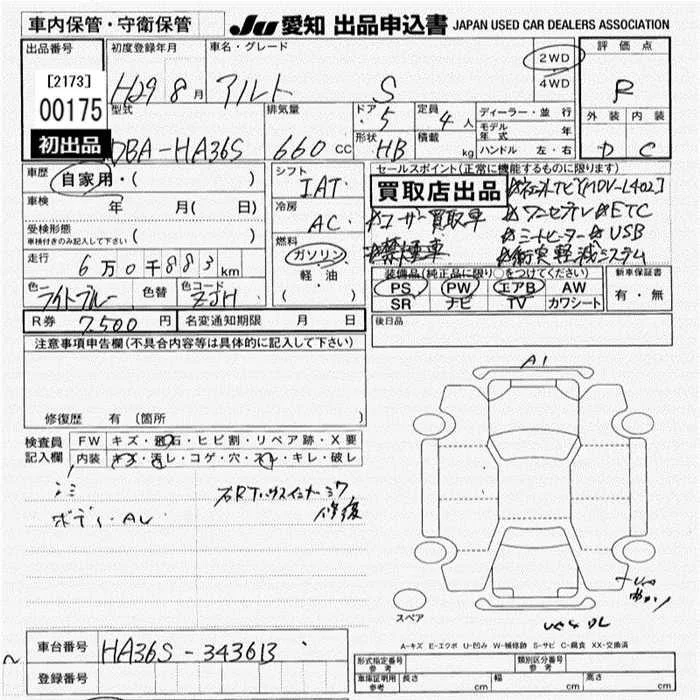 車内保管・守衛保管
JU 愛知 出品申込書 JAPAN USED CAR DEALERS ASSOCIATION
出品番号 初度登録年月 車名・グレード 評価点
[2173] H29 8月 アルト S 2WD 4WD R
00175 初出品
型式 排気量 ドア 定員 ディーラー・並行 外装 内装
5 4人 モデル年式 年
DBA-HA36S 660cc 形状 HB 積載 kg ハンドル 左・右 D C
車歴 自家用・( )
シフト IAT
セールスポイント(正常に機能するものに限ります)
買取店出品
車検 年 月( 日)
冷房 AC
ユーザー買取車 ワンセグTV ETC
受検形態 車検付きのみ記入して下さい ( )
禁煙車 シートヒーター USB
衝突軽減システム
走行 6万0千883km
燃料 ガソリン 軽・油 ( )
装備品(純正品に限り○をつけてください) 新車保証書
PS PW エアB AW 有・無
SR ナビ TV カワシート
色 ライトブルー 色替 色コード ZJH
R券 7500円 名変通知期限 月 日
後日品
注意事項申告欄(不具合内容等は具体的に記入して下さい)
修復歴 有 (箇所 )
A1
検査員記入欄 FW キズ・飛石・ヒビ割・リペア跡・X要
内装 キズ・汚レ・コゲ・穴・スレ・キレ・破レ
ボディ・AU
修復
スペア
A-キズ E-エクボ U-凹み W-補修跡 S-サビ C-腐食 XX-交換済
車台番号 HA36S-343613
登録番号
形式指定番号 参考 類別区分番号 参考
車庫証明用 参考 長さ cm 幅 cm 高さ cm